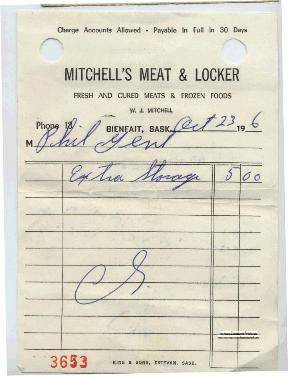 Charge Accounts Allowed - Payable In Full in 30 Days
MITCHELL'S MEAT & LOCKER
FRESH AND CURED MEATS & FROZEN FOODS
W. J. MITCHELL
Phone 13 BIENFAIT, SASK. Oct 23 19 6
M Phil Gent
Extra Storage 5 00
3653
KING & SONS, ESTEVAN, SASK.